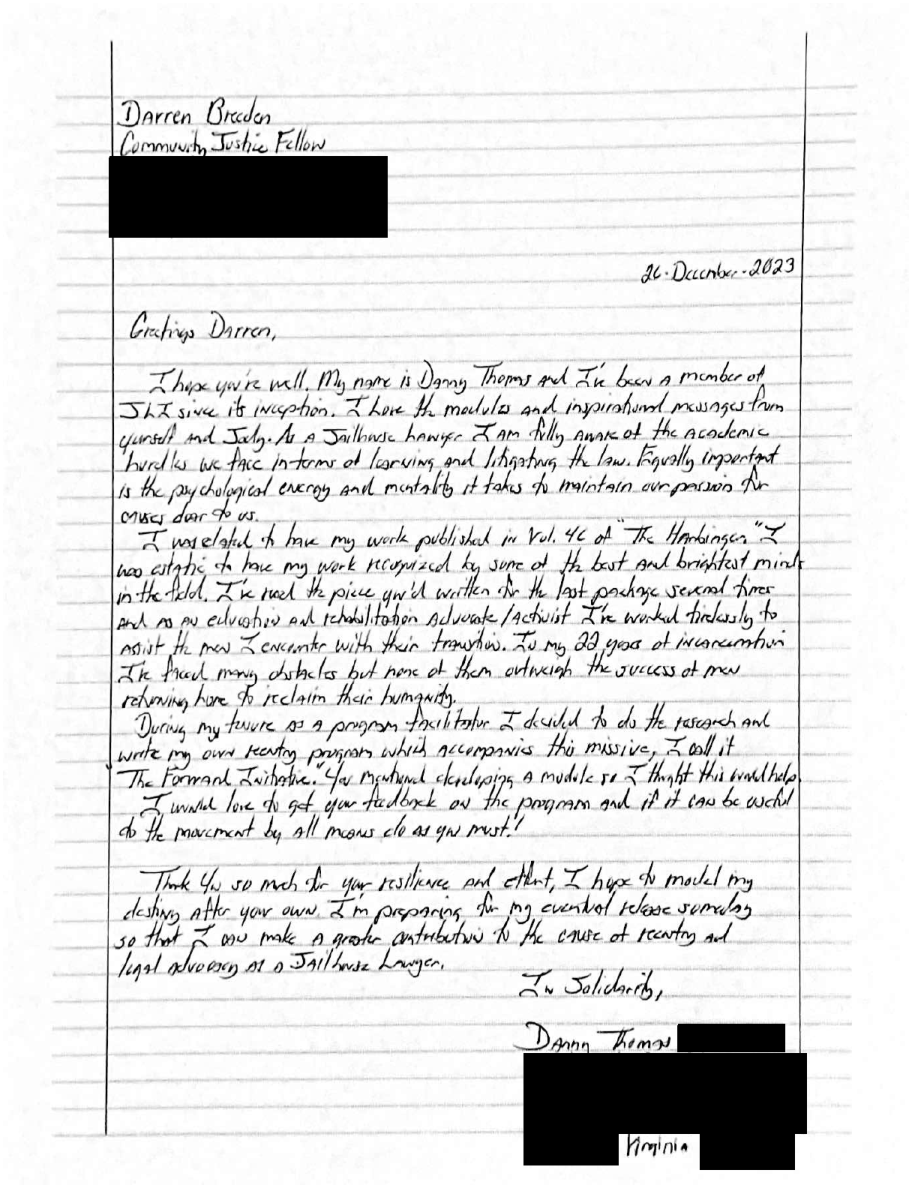 Darren Breeden
Community Justice Fellow
26-December-2023
Greetings Darren,
I hope you're well. My name is Danny Thomas and I've been a member of
JLI since its inception. I love the modules and inspirational messages from
yourself and Jody. As a Jailhouse Lawyer I am fully aware of the academic
hurdles we face in terms of learning and litigating the law. Equally important
is the psychological energy and mentality it takes to maintain our passion for
causes dear to us.
I was elated to have my work published in Vol. 46 of "The Harbinger." I
was ecstatic to have my work recognized by some of the best and brightest minds
in the field. I've read the piece you'd written for the last package several times
and as an education and rehabilitation Advocate/Activist I've worked tirelessly to
assist the men I encounter with their transition. In my 22 years of incarceration
I've faced many obstacles but none of them outweigh the success of men
returning home to reclaim their humanity.
During my tenure as a program facilitator I decided to do the research and
write my own reentry program which accompanies this missive, I call it
"The Forward Initiative." You mentioned developing a module so I thought this would help.
I would love to get your feedback on the program and if it can be useful
to the movement by all means do as you must!
Thank you so much for your resilience and effort, I hope to model my
destiny after your own. I'm preparing for my eventual release someday
so that I can make a greater contribution to the cause of reentry and
legal advocacy as a Jailhouse Lawyer.
In Solidarity,
Danny Thomas
Virginia